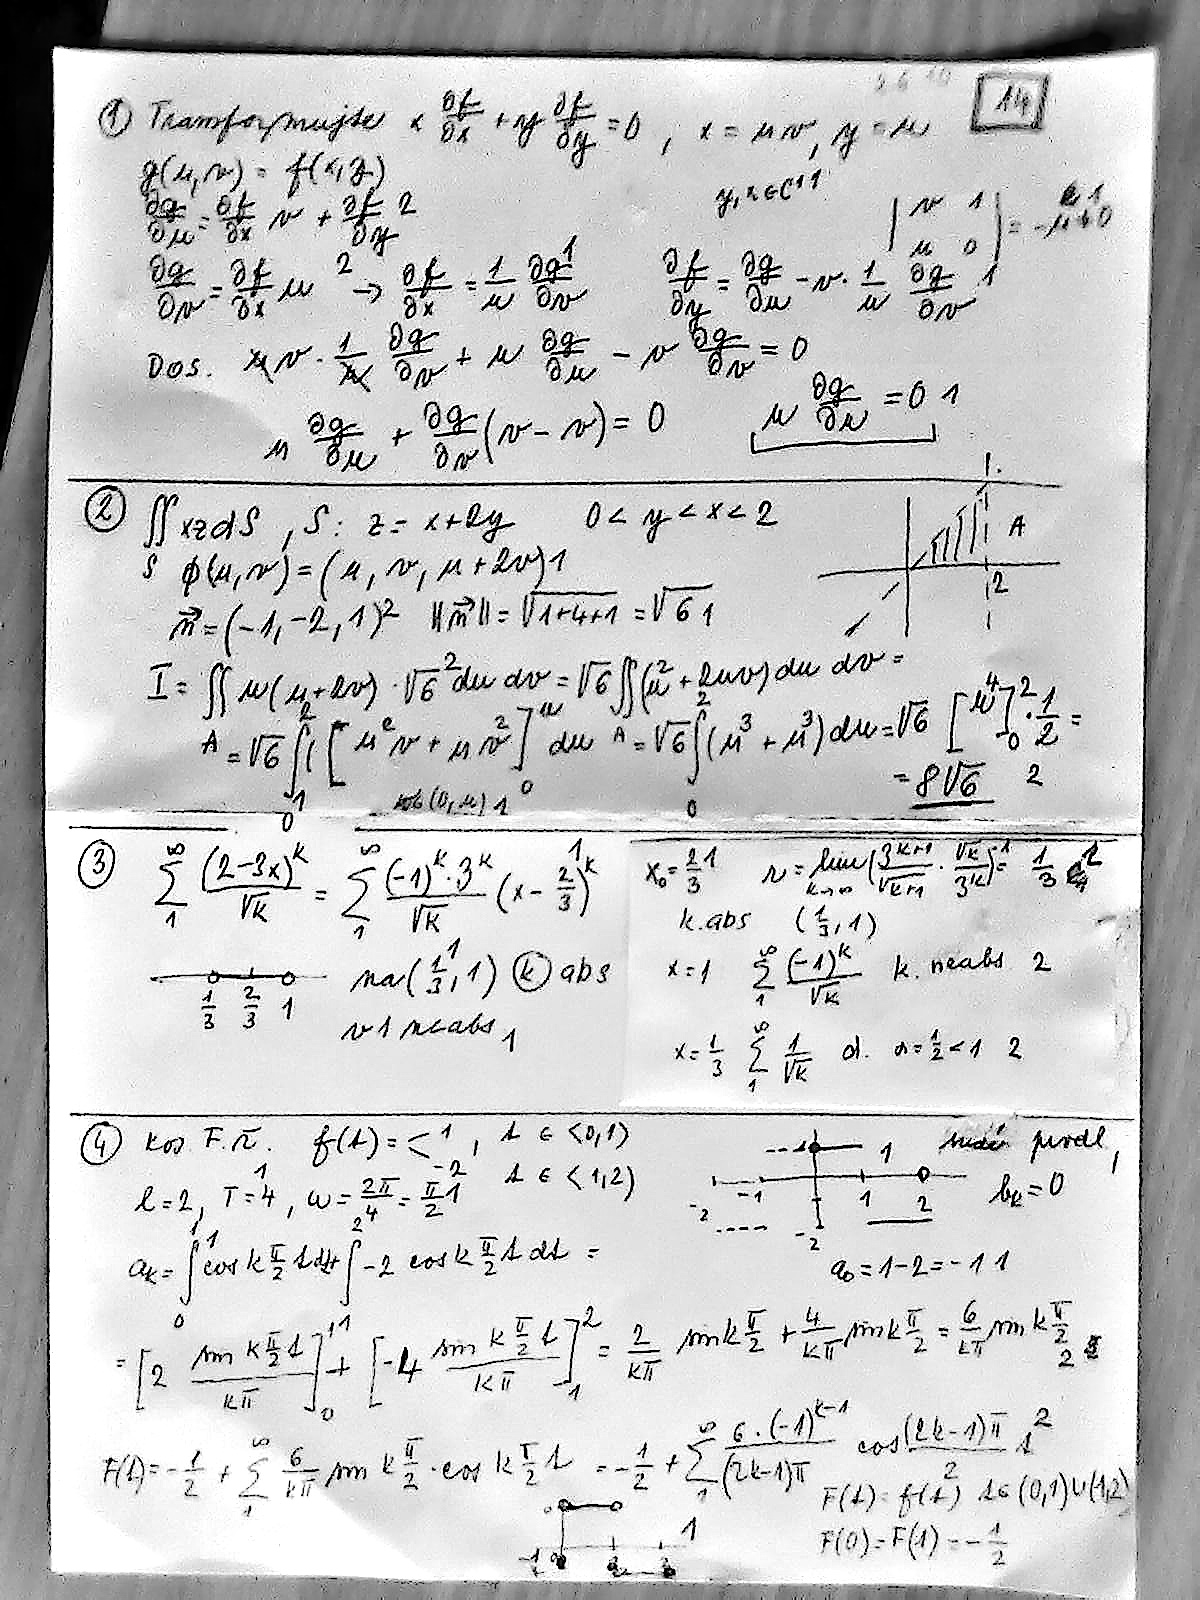 14
① Transformujte x ∂f/∂x + y ∂f/∂y = 0 , x = uv, y = u
g(u,v) = f(x,y)
∂g/∂u = ∂f/∂x v + ∂f/∂y 2
| v 1 ; u 0 | = -u ≠ 0
∂g/∂v = ∂f/∂x u 2 → ∂f/∂x = 1/u ∂g/∂v 1 ∂f/∂y = ∂g/∂u - v · 1/u ∂g/∂v 1
DOS. uv · 1/u ∂g/∂v + u ∂g/∂u - v ∂g/∂v = 0
u ∂g/∂u + ∂g/∂v (v - v) = 0 u ∂g/∂u = 0 1
② ∬_S xz dS , S: z = x+2y 0 < y < x < 2
ϕ(u,v) = (u, v, u+2v) 1
n⃗ = (-1, -2, 1) 2 ||n⃗|| = √(1+4+1) = √6 1
A
2
I = ∬_A u(u+2v) · √6 2 du dv = √6 ∬_A (u² + 2uv) du dv =
= √6 ∫_0^2 ( [u²v + uv²]_0^u du = √6 ∫_0^2 (u³ + u³) du = √6 [u⁴]_0^2 · 1/2 =
= 8√6 2
③ ∑_1^∞ (2-3x)^k/√k = ∑_1^∞ (-1)^k · 3^k/√k (x - 2/3)^k 1
1/3 2/3 1 na (1/3, 1) 1 ⓚ abs
v 1 neabs 1
x₀ = 2/3 1 r = lim_{k→∞} (3^{k+1}/√(k+1) · √k/3^k)^{-1} = 1/3
k. abs (1/3, 1)
x = 1 ∑_1^∞ (-1)^k/√k k. neabs 2
x = 1/3 ∑_1^∞ 1/√k d. s = 1/2 < 1 2
④ kos F.ř. f(t) = < 1 , t ∈ ⟨0,1)
-2 t ∈ ⟨1,2)
l = 2, T = 4 1, ω = 2π/4 = π/2 1
prodl,
b_k = 0
-2 -1 1 2
-2
a_k = ∫_0^1 cos k π/2 t dt + ∫_1^2 -2 cos k π/2 t dt =
a₀ = 1 - 2 = -1 1
= [2 sin k π/2 t / kπ]_0^1 + [-4 sin k π/2 t / kπ]_1^2 = 2/kπ sin k π/2 + 4/kπ sin k π/2 = 6/kπ sin k π/2 2
F(t) = -1/2 + ∑_1^∞ 6/kπ sin k π/2 · cos k π/2 t = -1/2 + ∑_1^∞ 6·(-1)^{k-1}/(2k-1)π cos (2k-1)π/2 t 2
F(t) = f(t) t ∈ (0,1)∪(1,2)
F(0) = F(1) = -1/2
1